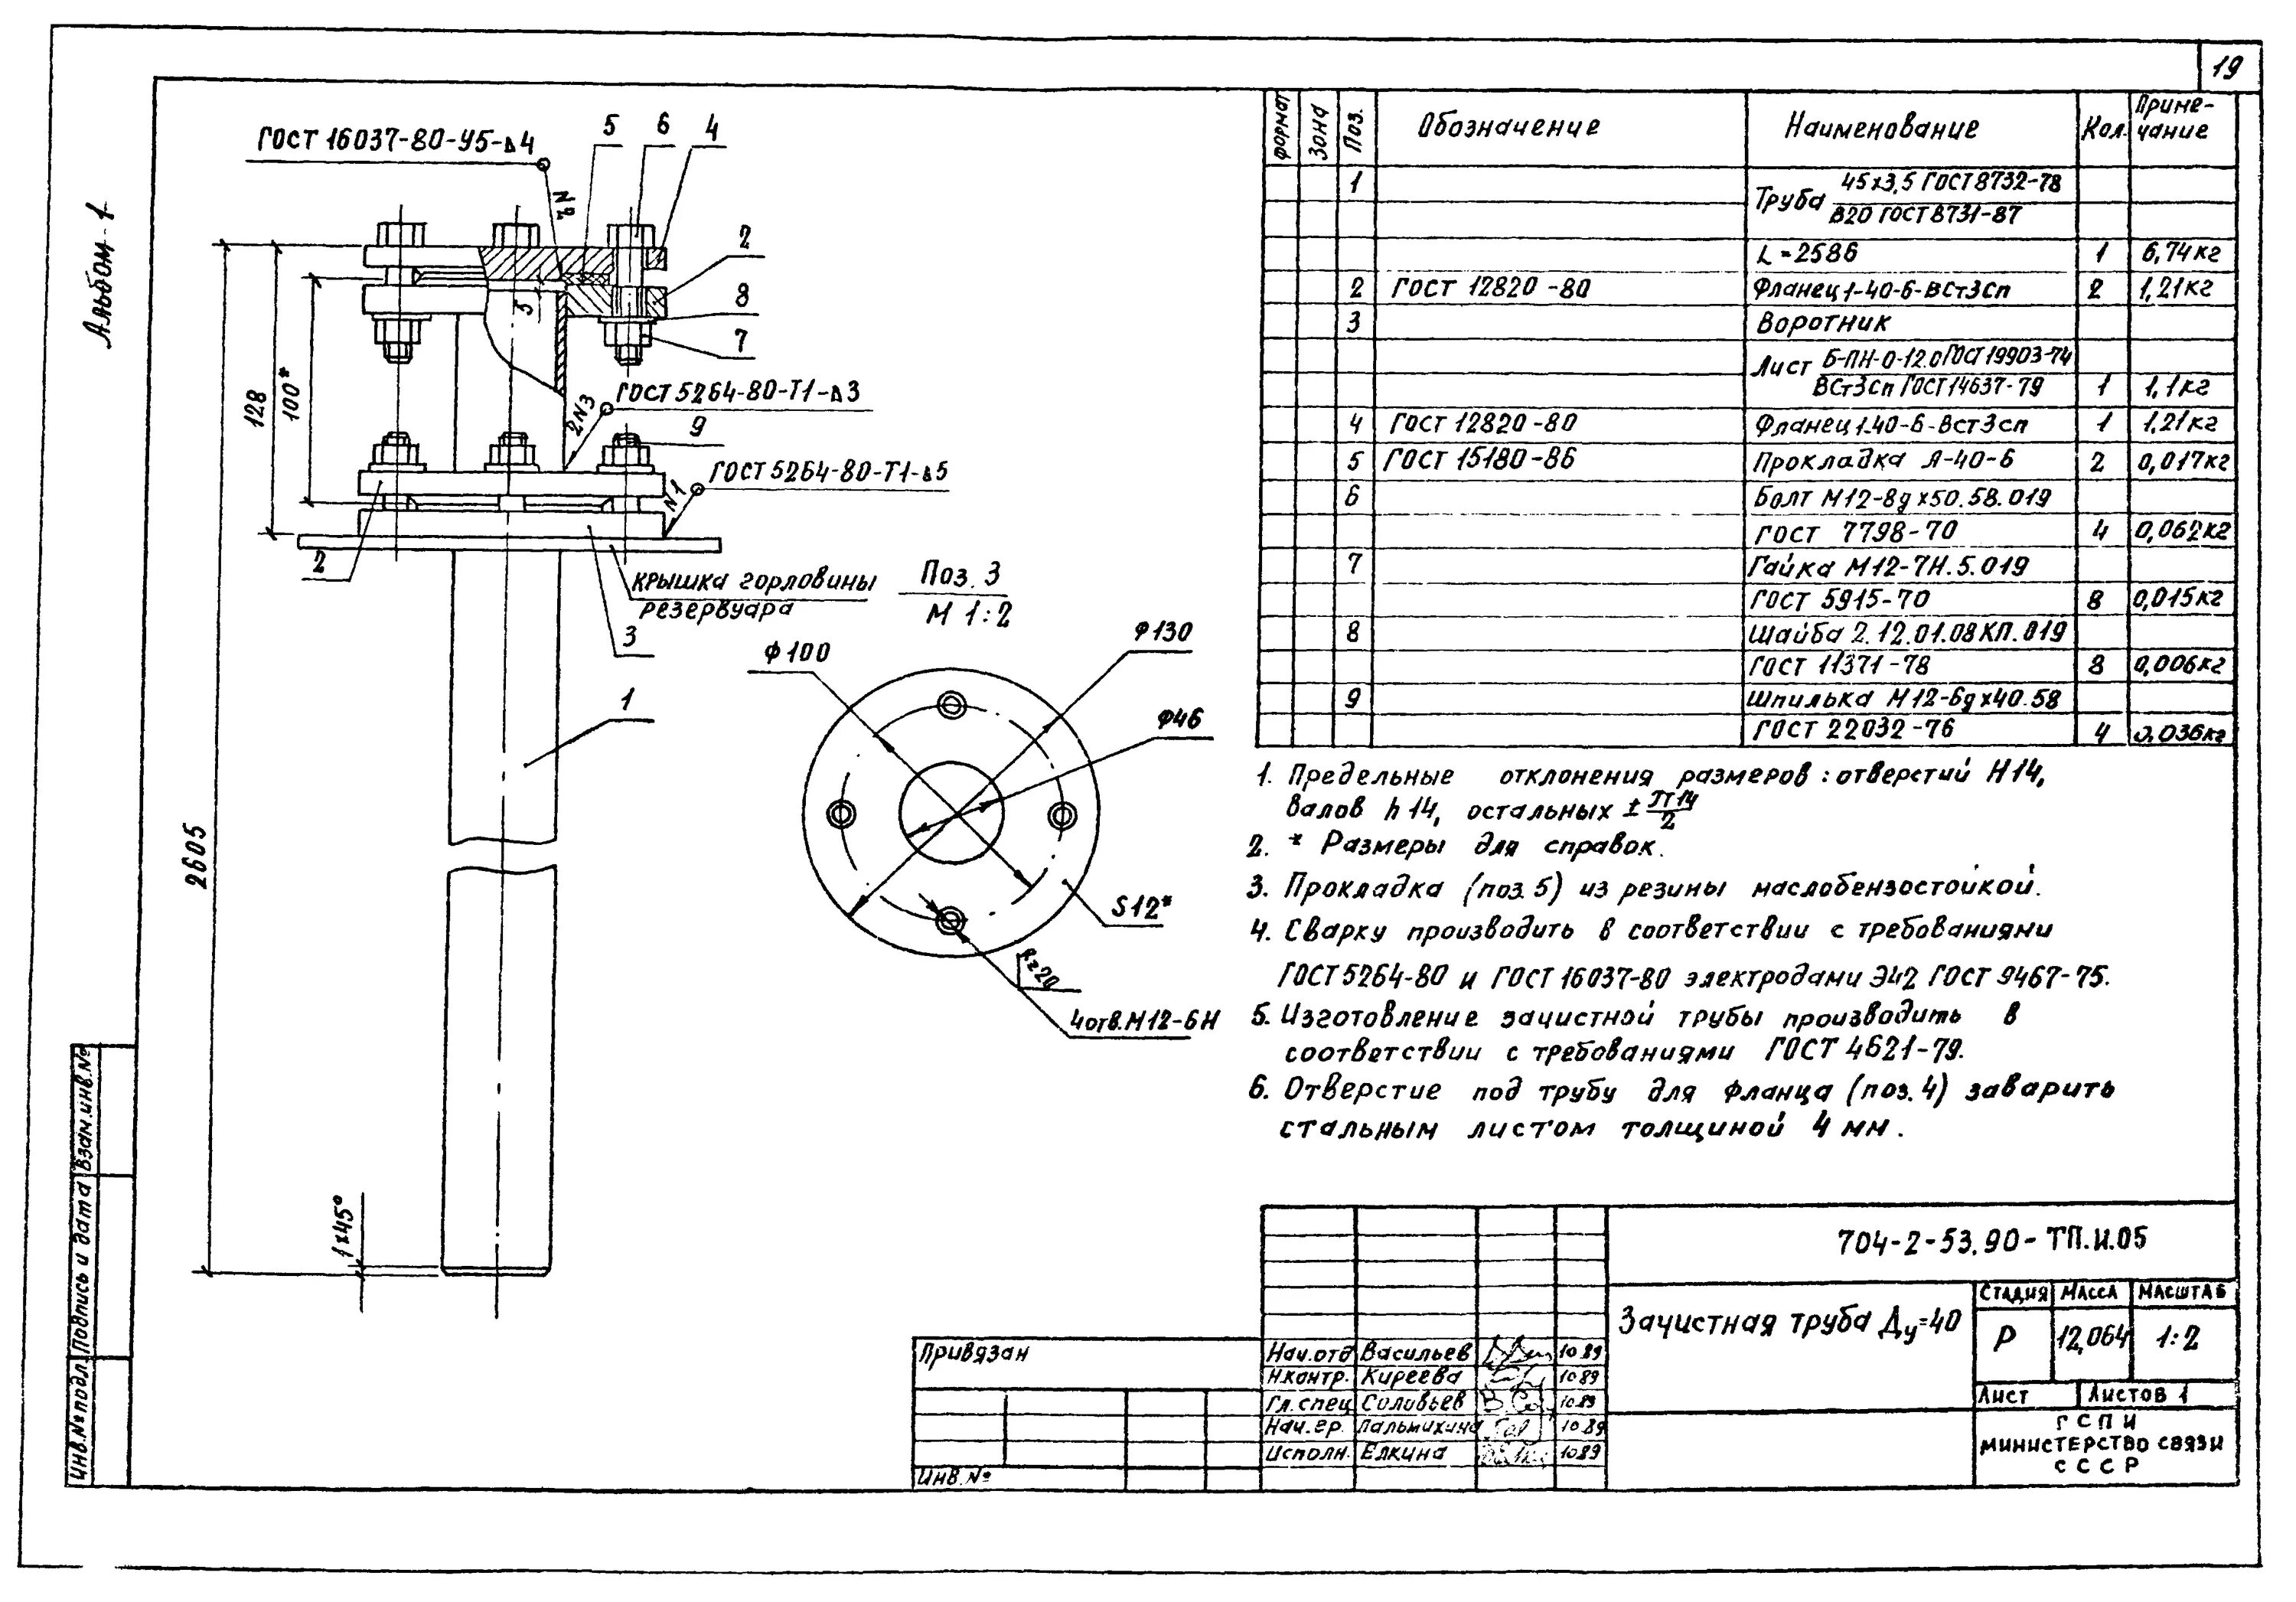 19
Альбом-1
ГОСТ 16037-80-У5-⊿4
5
6
4
N2
2
8
7
5
128
100*
ГОСТ 5264-80-Т1-⊿3
2N3
9
ГОСТ 5264-80-Т1-⊿5
N1
2
крышка горловины
резервуара
3
1
2605
1х45°
Поз. 3
М 1:2
Ф100
Ф130
Ф46
S12*
Rz20
4отв.М12-6Н
Формат
Зона
Поз.
Обозначение
Наименование
Кол.
Приме-
чание
1
Труба 45х3,5 ГОСТ 8732-78
В20 ГОСТ 8731-87
L=2586 1 6,74кг
2 ГОСТ 12820-80 Фланец 1-40-6-ВСт3сп 2 1,21кг
3 Воротник
Лист Б-ПН-О-12.0 ГОСТ 19903-74
ВСт3сп ГОСТ 14637-79 1 1,1кг
4 ГОСТ 12820-80 Фланец 1-40-6-ВСт3сп 1 1,21кг
5 ГОСТ 15180-86 Прокладка А-40-6 2 0,017кг
6 Болт М12-8gх50.58.019
ГОСТ 7798-70 4 0,062кг
7 Гайка М12-7Н.5.019
ГОСТ 5915-70 8 0,015кг
8 Шайба 2.12.01.08КП.019
ГОСТ 11371-78 8 0,006кг
9 Шпилька М12-6gх40.58
ГОСТ 22032-76 4 0,036кг
1. Предельные отклонения размеров: отверстий Н14,
валов h14, остальных ± IT14/2
2. * Размеры для справок.
3. Прокладка (поз.5) из резины маслобензостойкой.
4. Сварку производить в соответствии с требованиями
ГОСТ 5264-80 и ГОСТ 16037-80 электродами Э42 ГОСТ 9467-75.
5. Изготовление зачистной трубы производить в
соответствии с требованиями ГОСТ 4621-79.
6. Отверстие под трубу для фланца (поз.4) заварить
стальным листом толщиной 4 мм.
704-2-53.90-ТП.И.05
Зачистная труба Ду=40
Стадия Масса Масштаб
Р 12,064 1:2
Лист Листов 1
ГСПИ
Министерство связи
СССР
Привязан
Инв.№
Нач.отд Васильев 10.89
Н.контр. Киреева 10.89
Гл.спец Соловьев 10.89
Нач.гр. Пальмихина 10.89
Исполн. Елкина 10.89
Инв.№ подл. Подпись и дата Взам.инв.№